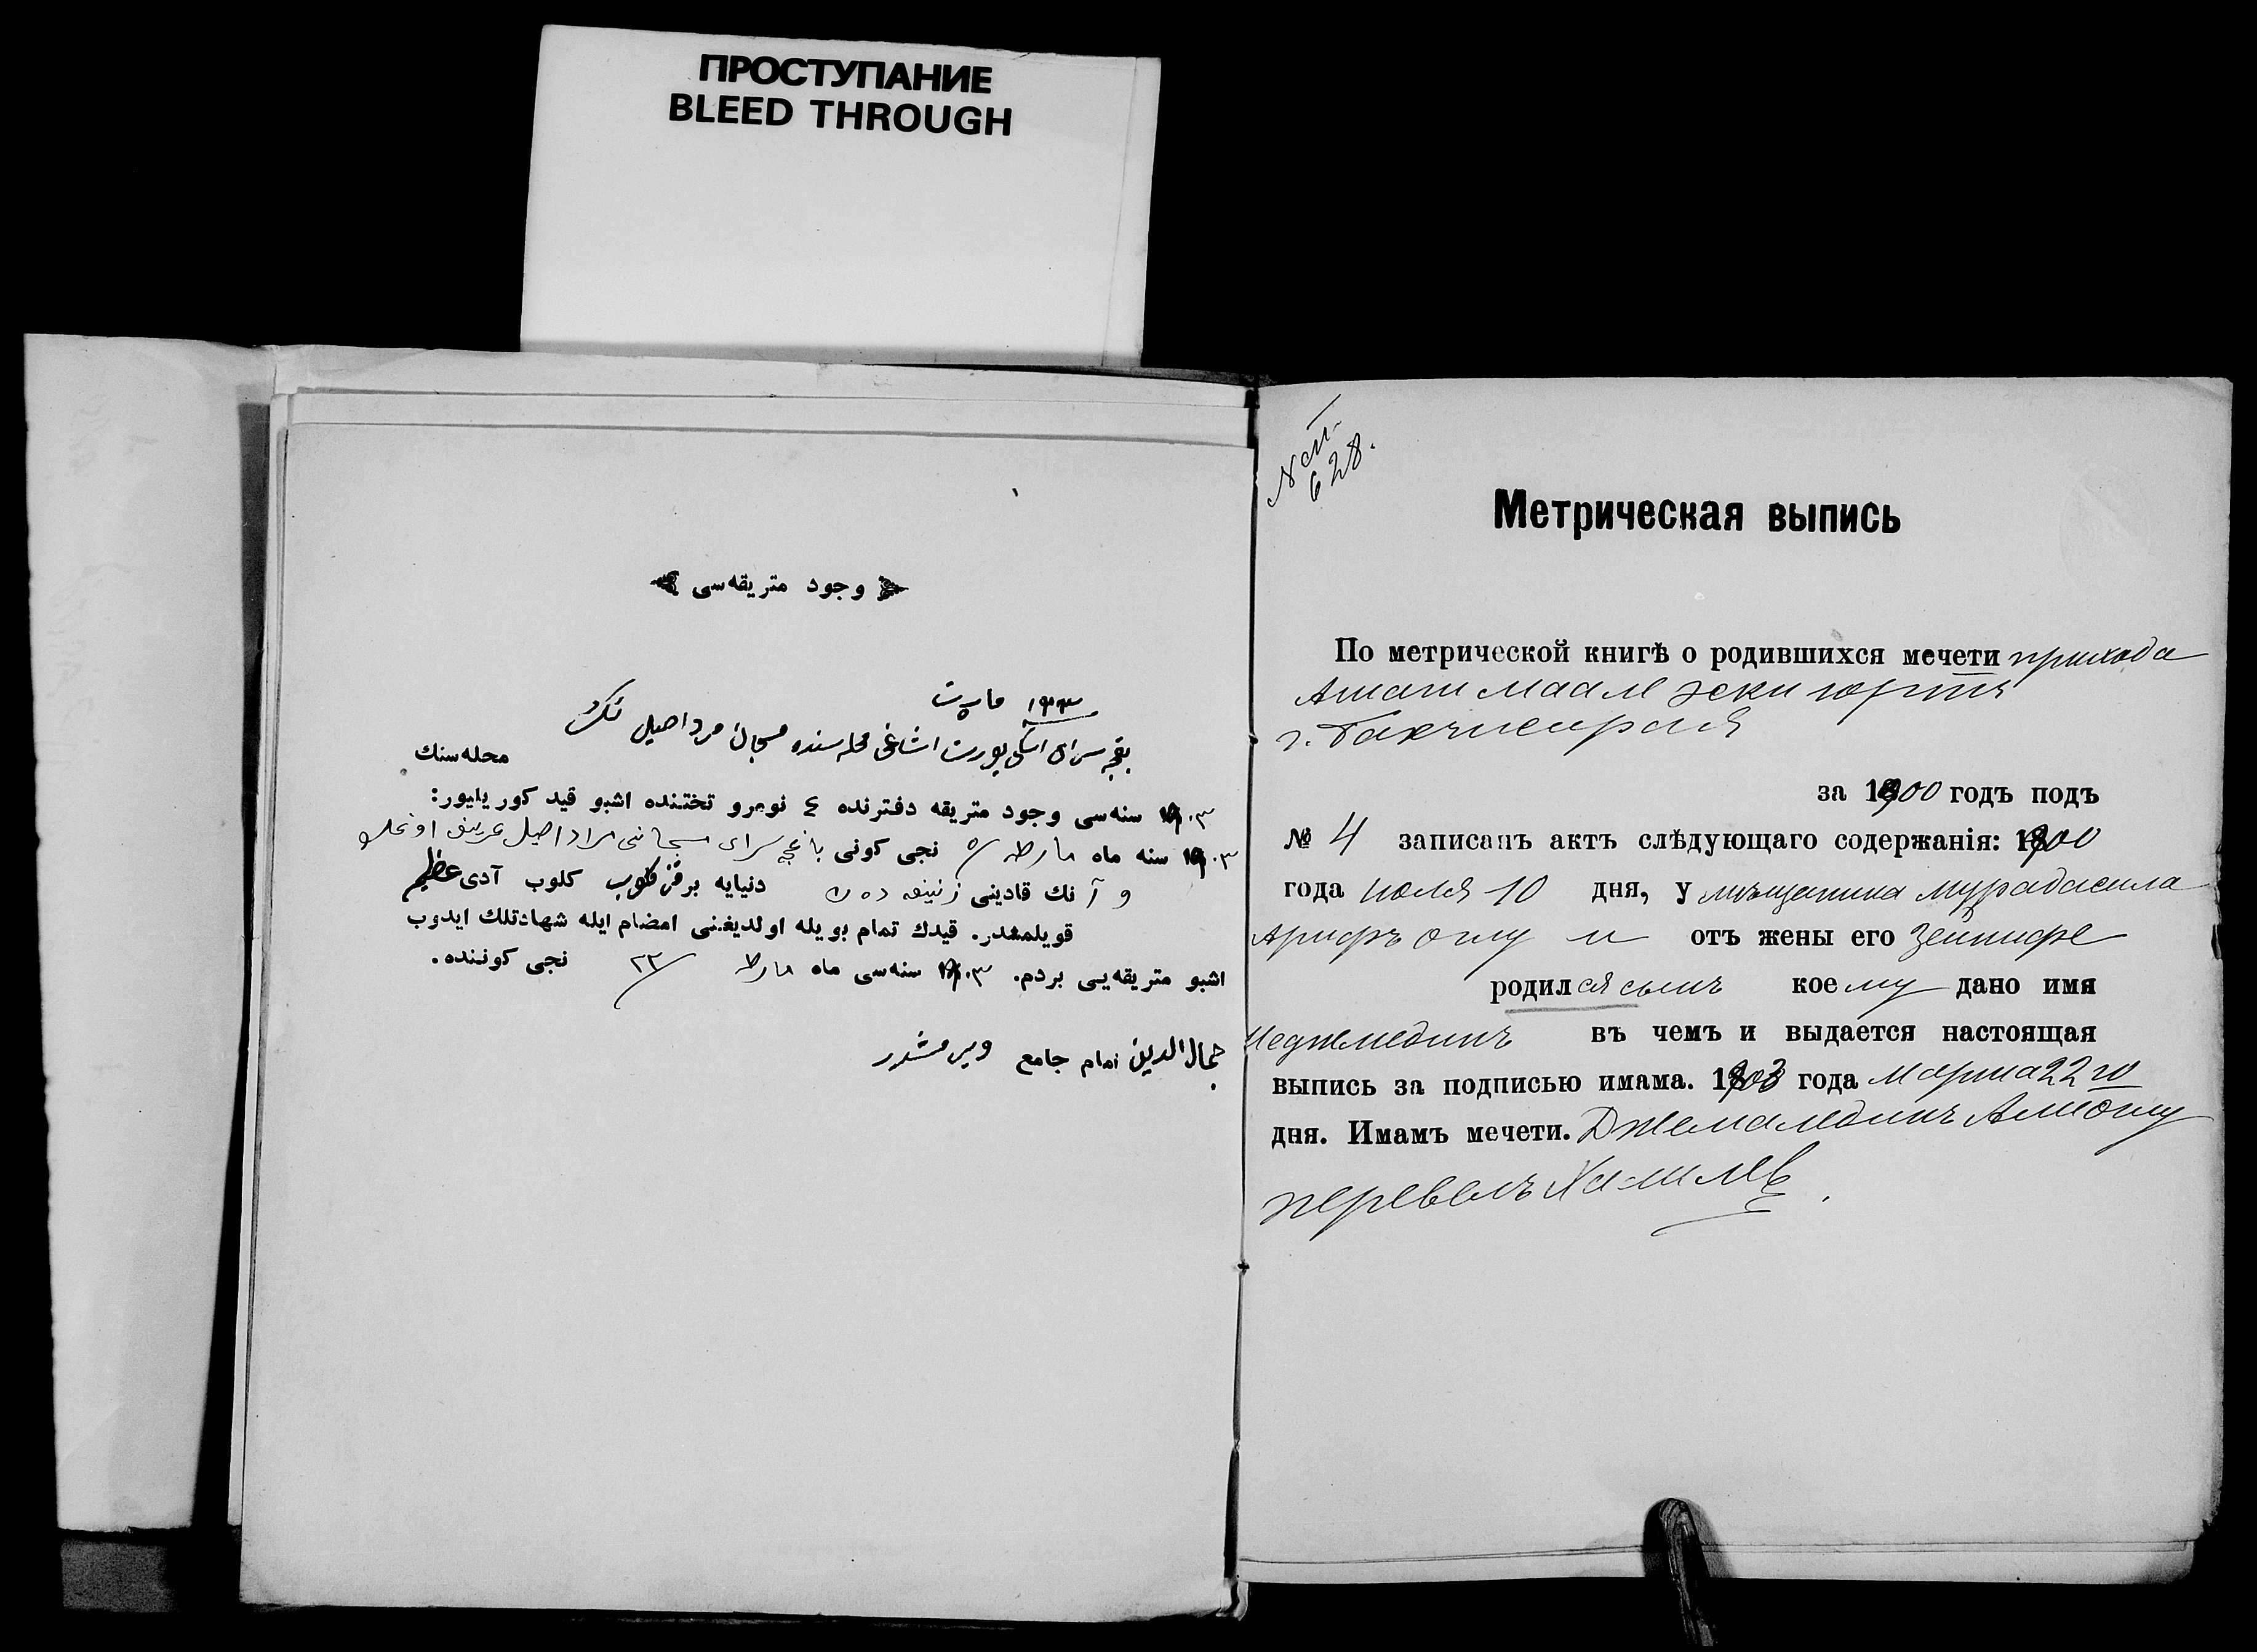 ПРОСТУПАНИЕ
BLEED THROUGH
وجود متریقه‌سی
۱۹۰۳ مارت
بغچه سرای اسکی یورت اشاغی محله سنده
محله‌سنك
۱۹۰۳ سنه‌سی وجود متریقه دفترنده ٤ نومرو تختنده اشبو قید كوریلیور:
۱۹۰۳ سنه ماه مارطه ۵ نجی كونی باغچه سرای
و آنك قادینی دنیایه بر قز كلوب آدی عظیم
قویلمشدر. قیدك تمام بویله اولدیغنی امضام ایله شهادتلك ایدوب
اشبو متریقه‌یی بردم. ۱۹۰۳ سنه‌سی ماه مارطه ۲۲ نجی كوننده.
جمال الدین امام جامع
628.
Метрическая выпись
По метрической книгѣ о родившихся мечети прихода
Ашаги Маале Эски юрта
г. Бахчисарая
за 1900 годъ подъ
№ 4 записанъ актъ слѣдующаго содержанія: 1900
года июля 10 дня, у мѣщанина Мурадасила
Арифъ оглу и отъ жены его Зейнифе
родился сынъ коему дано имя
Неджмединъ въ чемъ и выдается настоящая
выпись за подписью имама. 1903 года Марта 22 го
дня. Имамъ мечети. Джемалединъ Али оглу
перевелъ Халилев